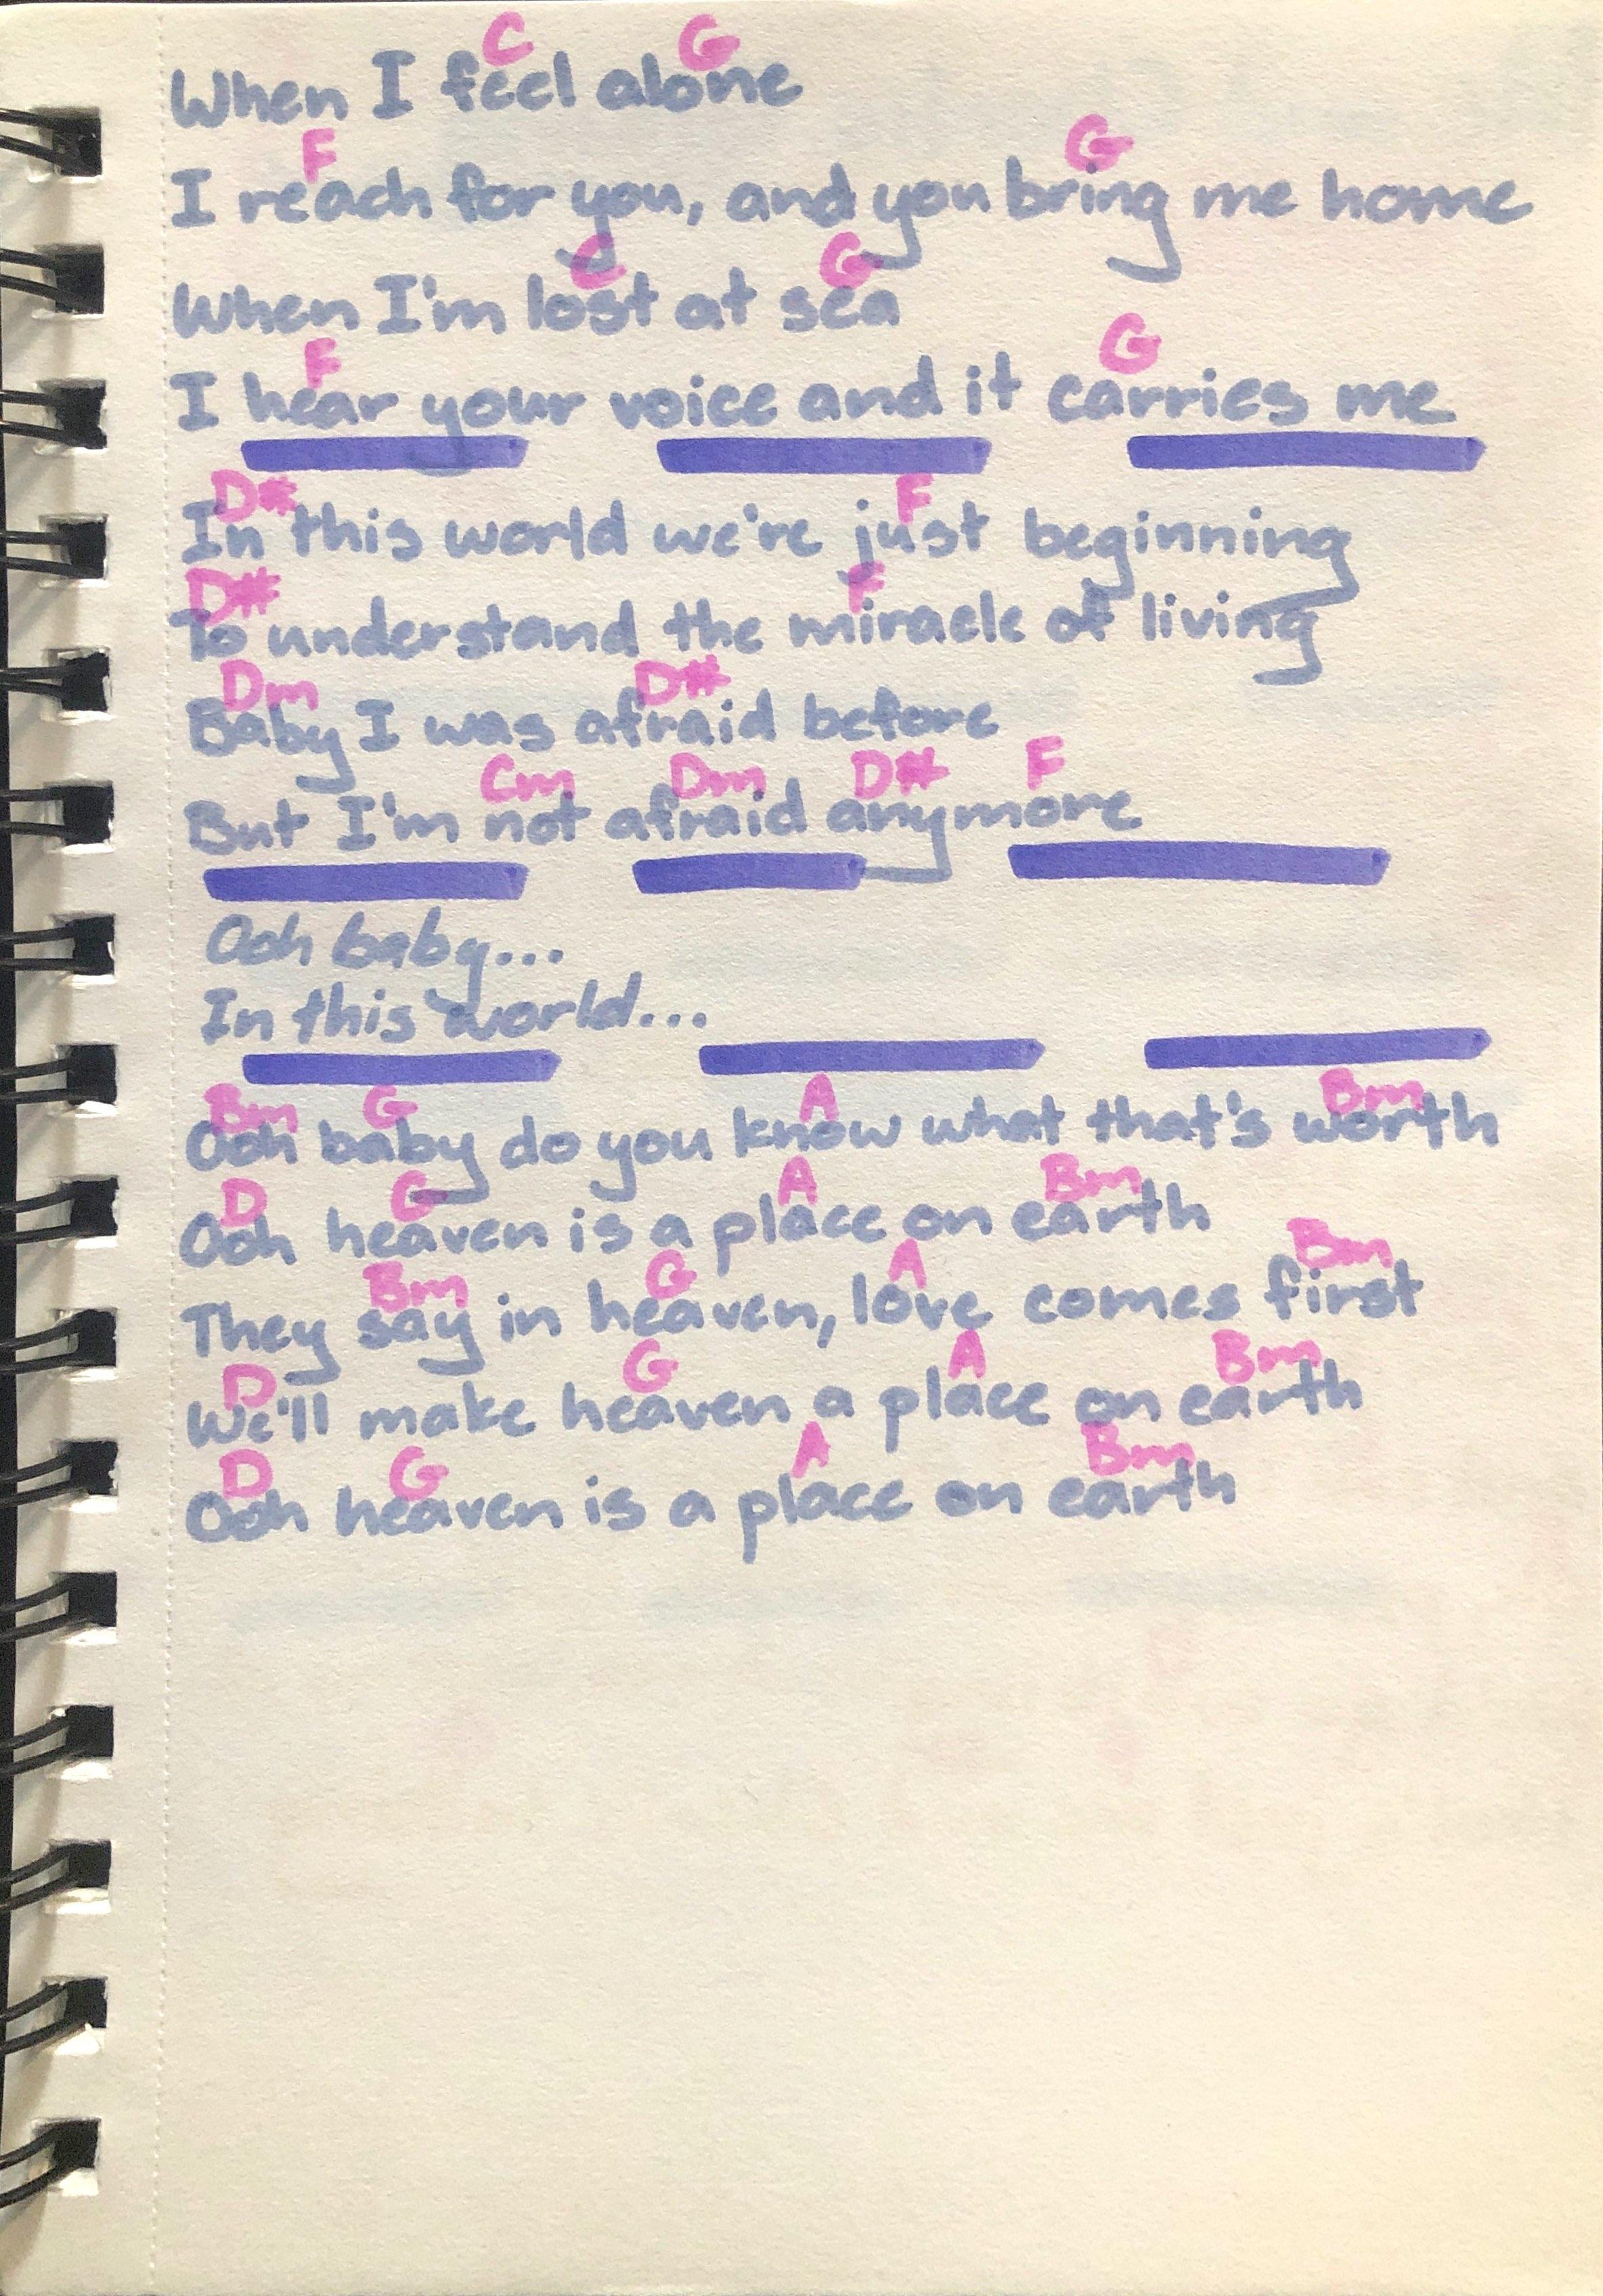 C G
When I feel alone
F G
I reach for you, and you bring me home
C G
When I'm lost at sea
F G
I hear your voice and it carries me
D# F
In this world we're just beginning
D# F
To understand the miracle of living
Dm D#
Baby I was afraid before
Cm Dm D# F
But I'm not afraid anymore
Ooh baby...
In this world...
Bm G A Bm
Ooh baby do you know what that's worth
D G A Bm
Ooh heaven is a place on earth
Bm G A Bm
They say in heaven, love comes first
D G A Bm
We'll make heaven a place on earth
D G A Bm
Ooh heaven is a place on earth